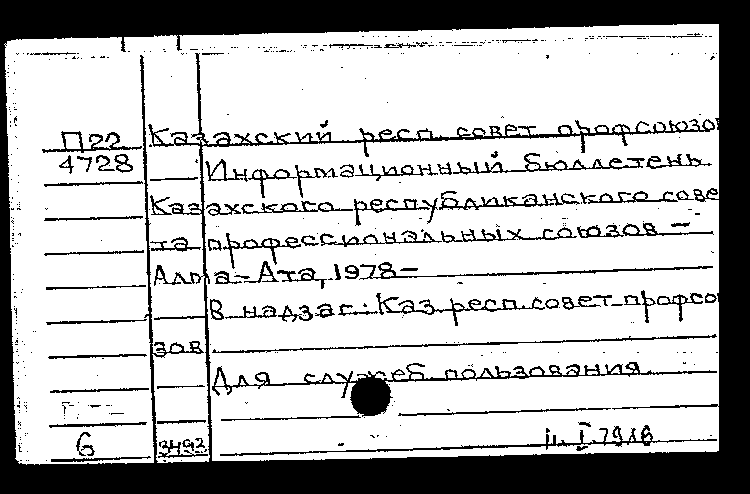 П22 Казахский респ. совет профсоюзо
4728 Информационный бюллетень
Казахского республиканского сове
та профессиональных союзов —
Алма-Ата, 1978—
В надзаг.: Каз. респ. совет профсо
зов
Для служеб. пользования
6 3493